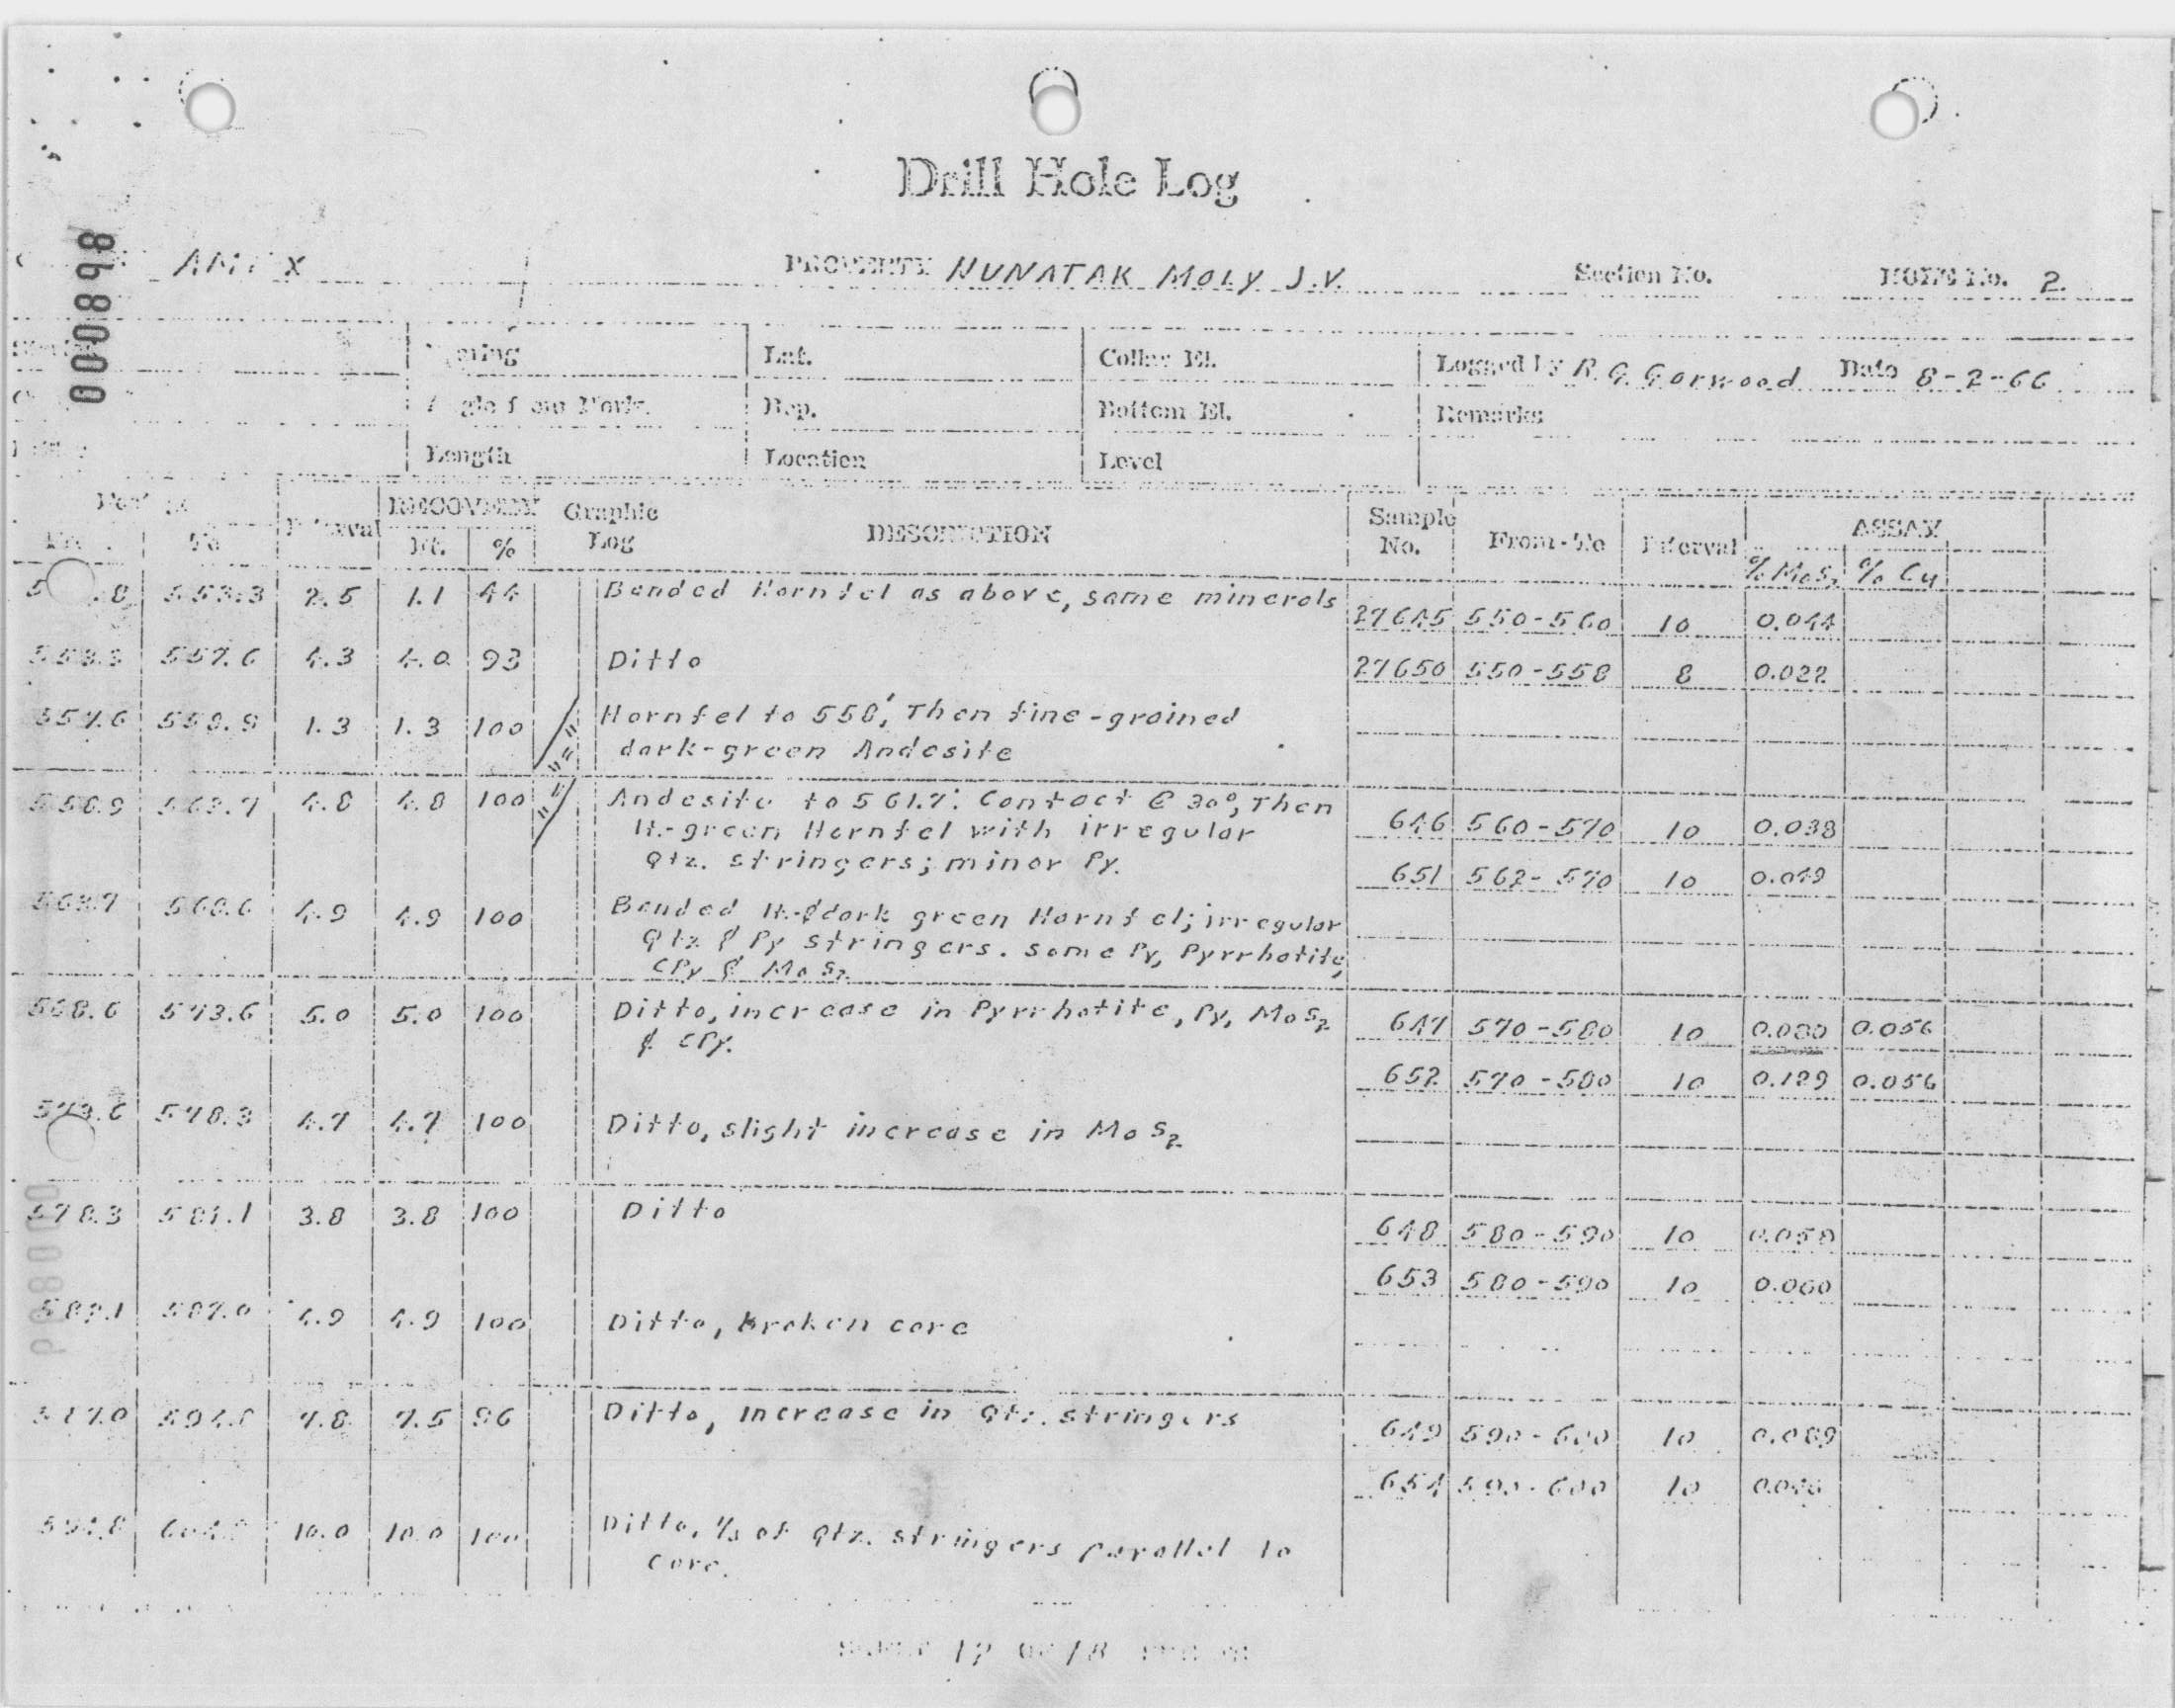 Drill Hole Log
000898
PROPERTY NUNATAK MOLY J.V. Section No. HOLE No. 2
Lat. Collar El. Logged by R.G. Gorwood Date 8-2-66
Dep. Bottom El. Remarks
Length Location Level
Interval RECOVERY Graphic Log DESCRIPTION Sample No. From-To Interval ASSAY
To Ft. % % MoS2 % Cu
553.3 2.5 1.1 44 Banded Hornfel as above, same minerals
27645 550-560 10 0.044
553.3 557.6 4.3 4.0 93 Ditto
27650 550-558 8 0.022
557.6 558.9 1.3 1.3 100 Hornfel to 558', Then fine-grained
dark-green Andesite
558.9 563.7 4.8 4.8 100 Andesite to 561.7'. Contact @ 30°, Then
lt.-green Hornfel with irregular
Qtz. stringers; minor Py.
646 560-570 10 0.038
651 562-570 10 0.049
563.7 568.6 4.9 4.9 100 Banded lt.-& dark green Hornfel; irregular
Qtz & Py stringers. Some Py, Pyrrhotite,
CPy & MoS2
568.6 573.6 5.0 5.0 100 Ditto, increase in Pyrrhotite, Py, MoS2
& CPy.
647 570-580 10 0.080 0.056
652 570-580 10 0.129 0.056
573.6 578.3 4.7 4.7 100 Ditto, slight increase in MoS2
578.3 3.8 3.8 100 Ditto
648 580-590 10 0.058
653 580-590 10 0.060
587.0 4.9 4.9 100 Ditto, Broken core
587.0 594.8 7.8 7.5 96 Ditto, Increase in Qtz. stringers
649 590-600 10 0.089
654 590-600 10
594.8 604.8 10.0 10.0 100 Ditto, 1/3 of Qtz. stringers parallel to
core.
17 18